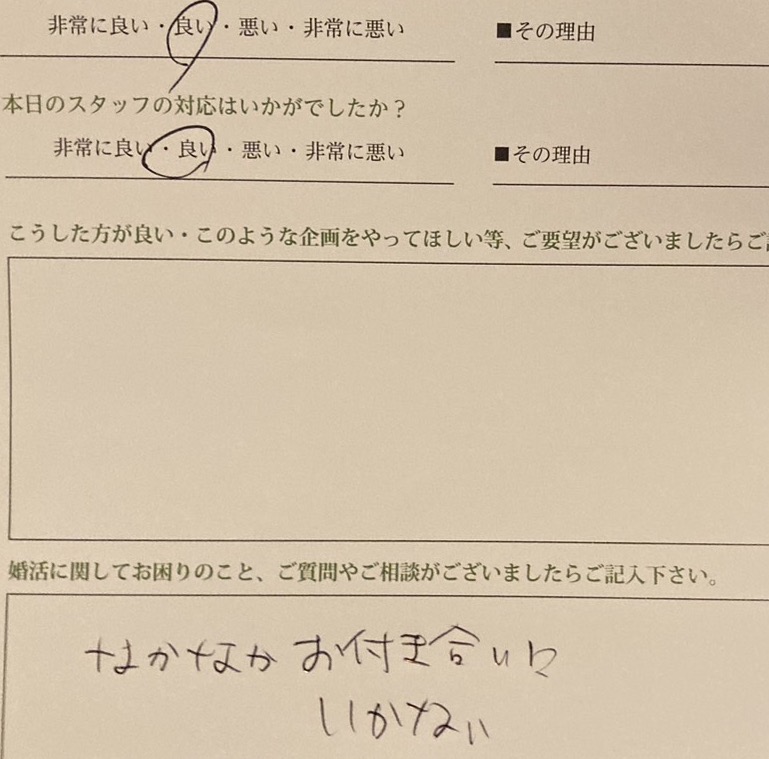 非常に良い・良い・悪い・非常に悪い ■その理由
本日のスタッフの対応はいかがでしたか？
非常に良い・良い・悪い・非常に悪い ■その理由
こうした方が良い・このような企画をやってほしい等、ご要望がございましたらご
婚活に関してお困りのこと、ご質問やご相談がございましたらご記入下さい。
なかなかお付き合いに
いかない